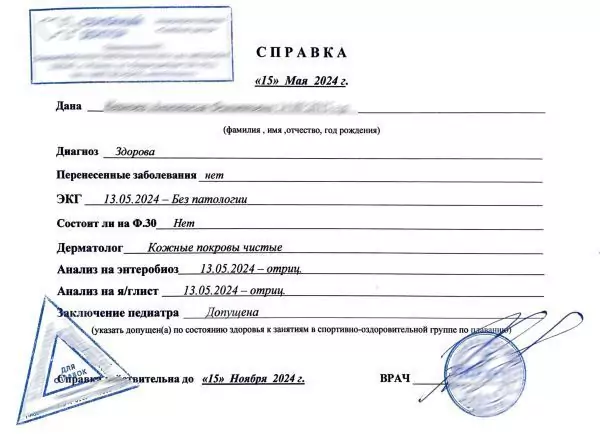 СПРАВКА
«15» Мая 2024 г.
Дана
(фамилия , имя ,отчество, год рождения)
Диагноз Здорова
Перенесенные заболевания нет
ЭКГ 13.05.2024 – Без патологии
Состоит ли на Ф.30 Нет
Дерматолог Кожные покровы чистые
Анализ на энтеробиоз 13.05.2024 – отриц.
Анализ на я/глист 13.05.2024 – отриц.
Заключение педиатра Допущена
(указать допущен(а) по состоянию здоровья к занятиям в спортивно-оздоровительной группе по плаванию)
ДЛЯ
СПРАВОК
Справка действительна до «15» Ноября 2024 г. ВРАЧ